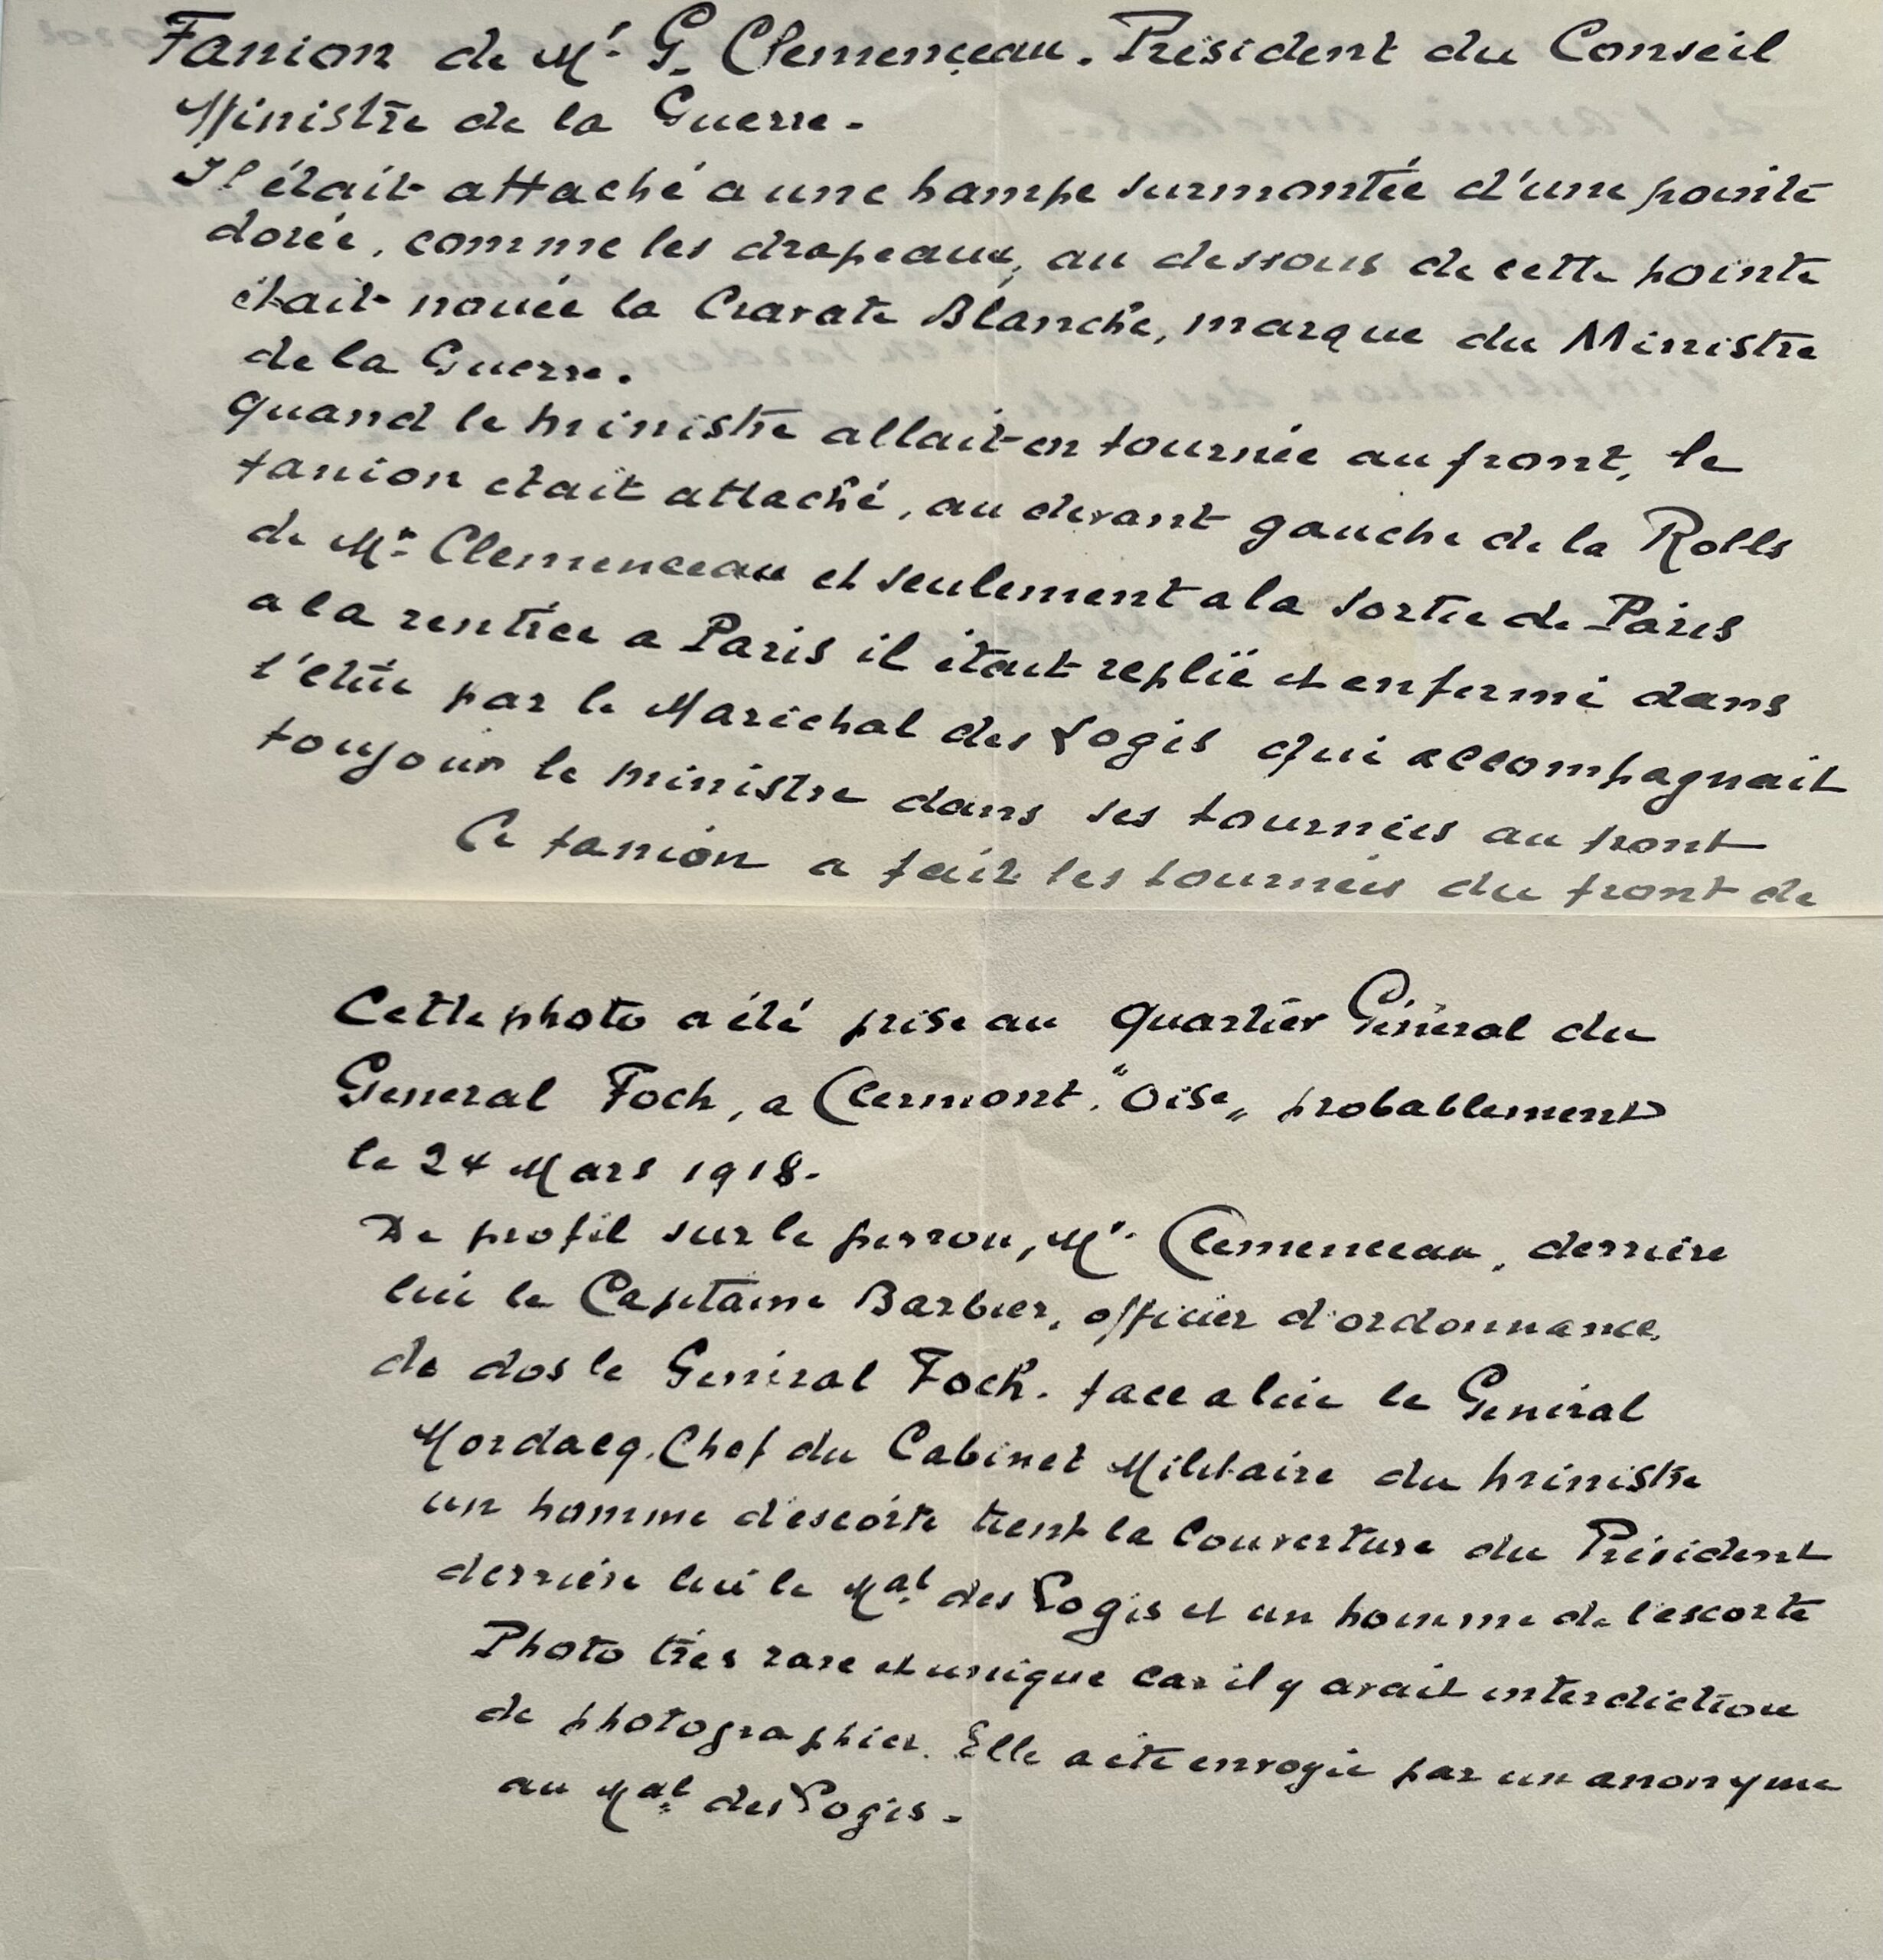 Fanion de Mr. G. Clemenceau. Président du Conseil
Ministre de la Guerre.
Il était attaché a une hampe surmontée d'une pointe
dorée, comme les drapeaux, au dessous de cette pointe
était nouée la Cravate Blanche, marque du Ministre
de la Guerre.
quand le ministre allait en tournée au front, le
fanion etait attaché, au devant gauche de la Rolls
de Mr. Clemenceau et seulement a la sortie de Paris
a la rentrée a Paris il était replié et enfermé dans
l'étui par le Maréchal des Logis qui accompagnait
toujours le ministre dans ses tournées au front
Ce fanion a fait les tournées du front de
Cette photo a été prise au quartier Général du
General Foch, a Clermont. "Oise" probablement
le 24 Mars 1918.
De profil sur le perron, Mr. Clemenceau, derriere
lui le Capitaine Barbier, officier d'ordonnance,
de dos le Général Foch. face a lui le Général
Mordacq. Chef du Cabinet Militaire du ministre
un homme d'escorte tient la Couverture du Président
derrière lui le Mal des Logis et un homme de l'escorte
Photo très rare et unique car il y avait interdiction
de photographier. Elle a été envoyée par un anonyme
au Mal des Logis.